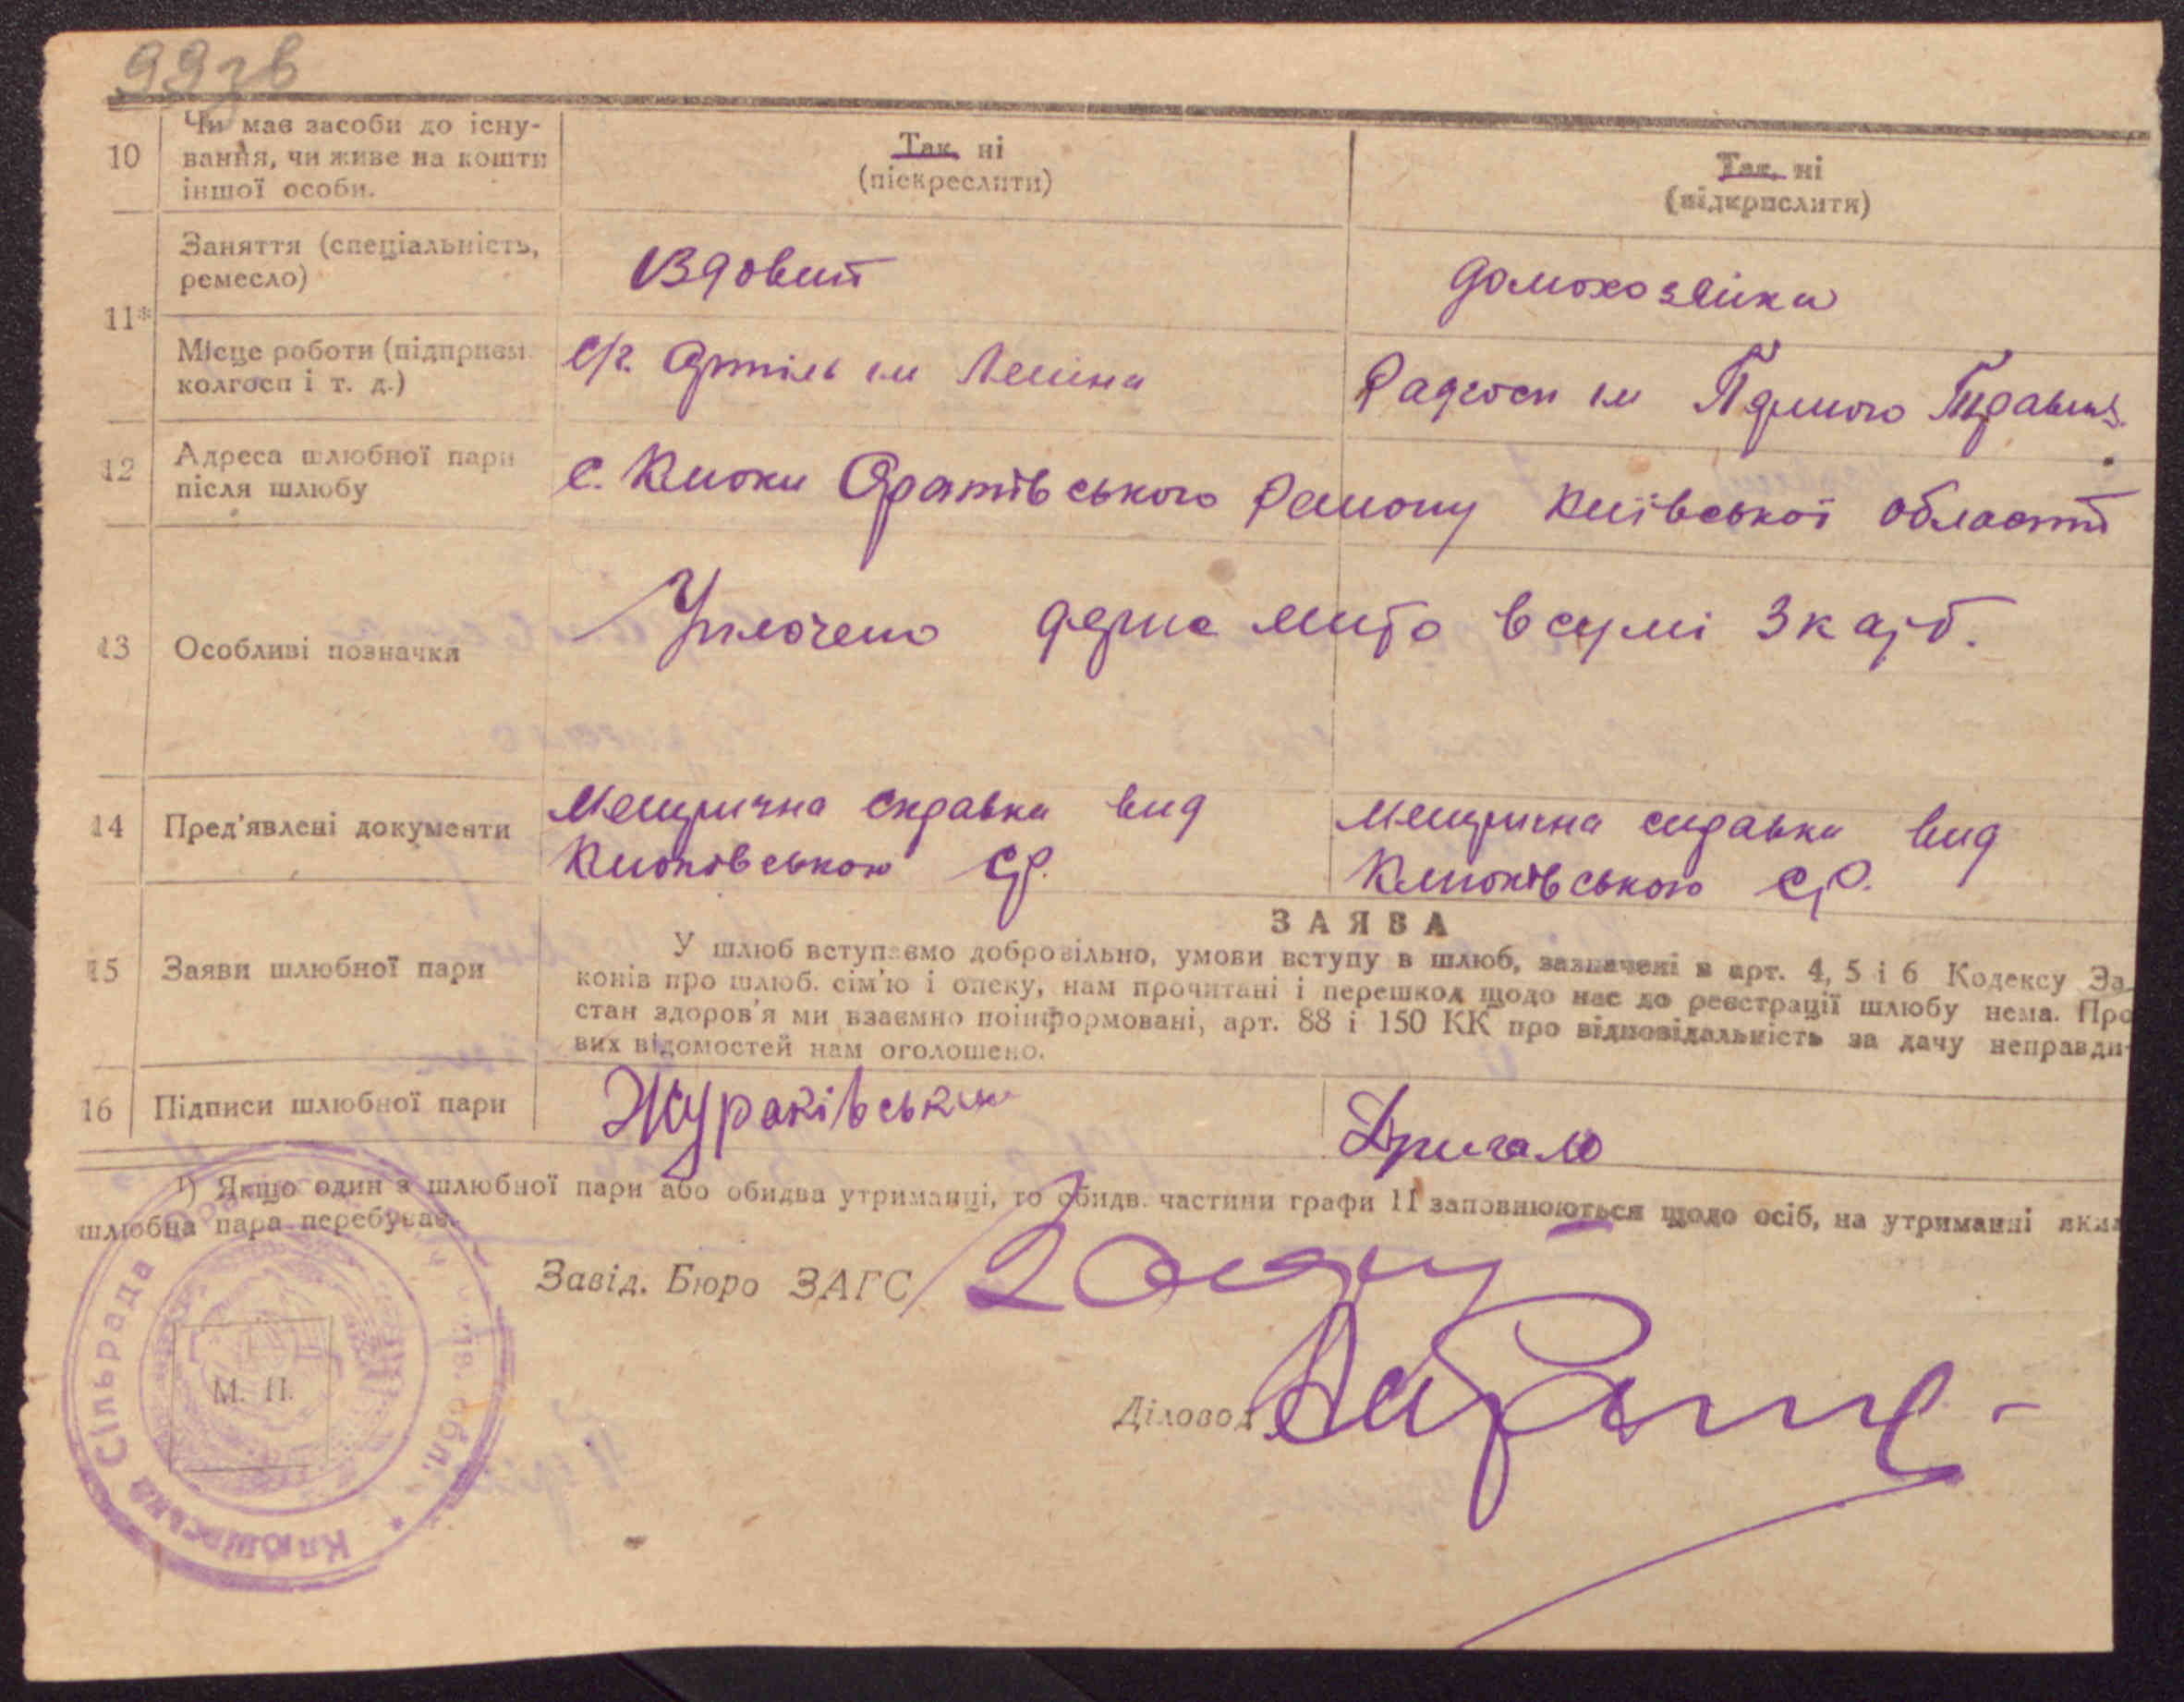 99зв
10
Чи має засоби до існу-
вання, чи живе на кошти
іншої особи.
Так, ні
(піскреслити)
Так, ні
(відкрислитя)
11*
Заняття (спеціальність,
ремесло)
Їздовий
домохозяйка
Місце роботи (підприєм.
колгосп і т. д.)
С/г. Артіль ім Леніна
Радгосп ім Першого Травня.
12
Адреса шлюбної пари
після шлюбу
с. Клюки Оратівського району Київської області
13
Особливі позначки
Уплочено держ мито в сумі 3 карб.
14
Пред'явлені документи
Метрична справка вид
Клюківською С/Р.
Метрична справка вид
Клюківською С/Р.
15
Заяви шлюбної пари
ЗАЯВА
У шлюб вступаємо добровільно, умови вступу в шлюб, зазначені в арт. 4, 5 і 6 Кодексу За
конів про шлюб. сім'ю і опеку, нам прочитані і перешкод щодо нас до реєстрації шлюбу нема. Про
стан здоров'я ми взаємно поінформовані, арт. 88 і 150 КК про відповідальність за дачу неправди-
вих відомостей нам оголошено.
16
Підписи шлюбної пари
Жураківський
Дригало
¹) Якщо один з шлюбної пари або обидва утриманці, то обидв. частини графи 11 заповнюються щодо осіб, на утриманні яких
шлюбна пара перебуває.
Завід. Бюро ЗАГС
Діловод
М. П.
Сільрада
обл.